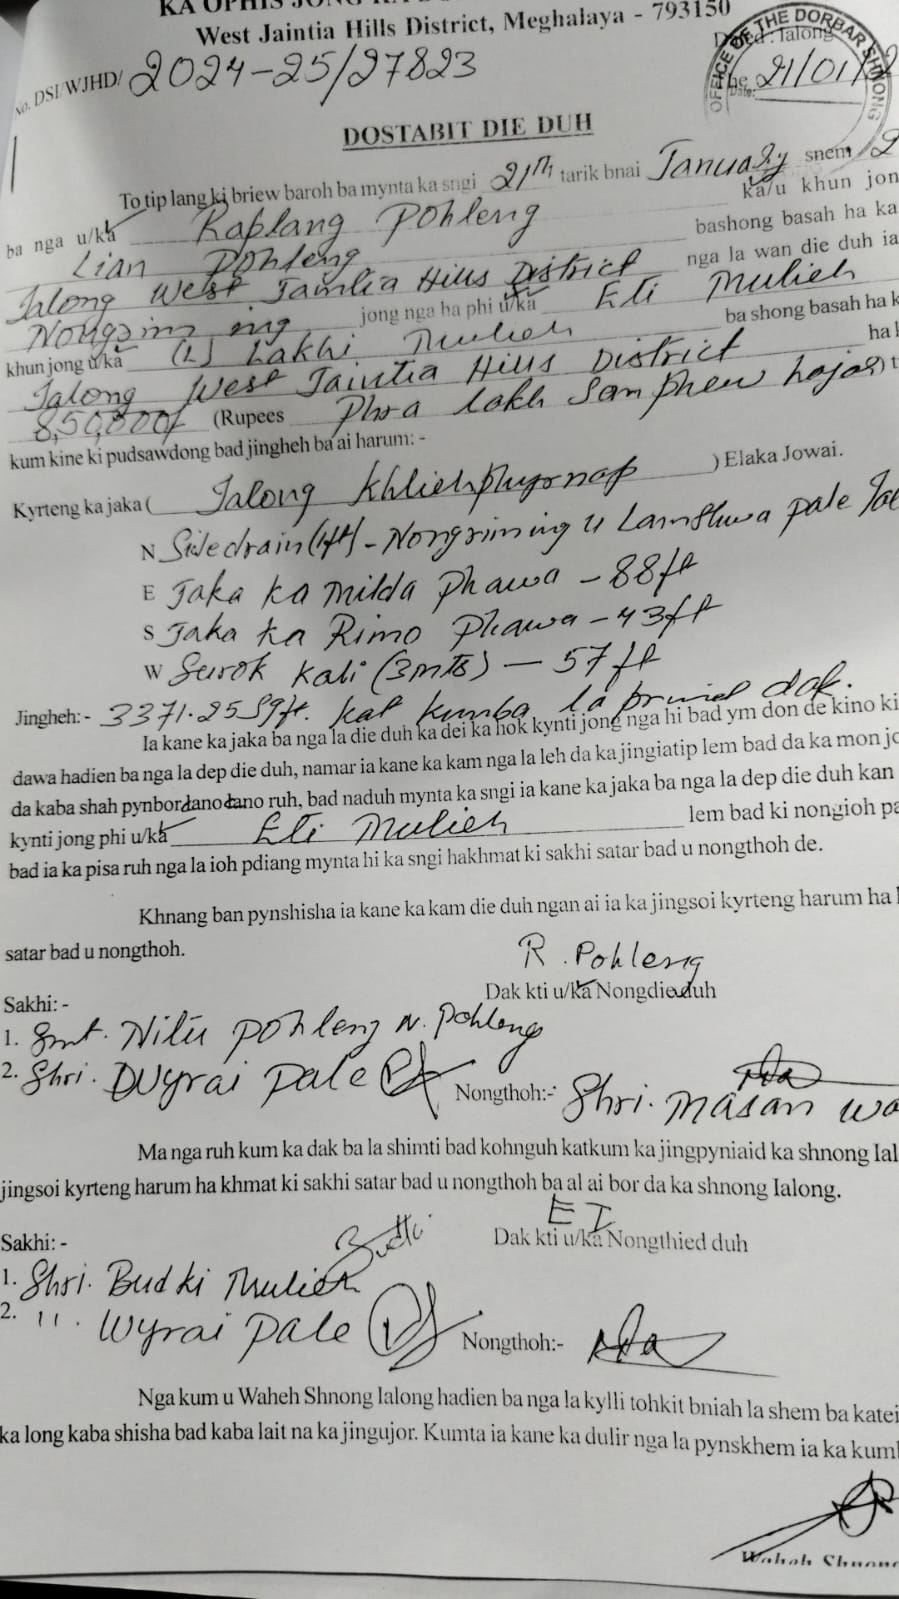 West Jaintia Hills District, Meghalaya - 793150
OFFICE OF THE DORBAR SHNONG
Dated: Ialong
No. DSI/WJHD/ 2024-25/27823
the 21/01/2
Date:
DOSTABIT DIE DUH
To tip lang ki briew baroh ba mynta ka sngi 21th tarik bnai January snem 2
ba nga u/ka Raplang Pohleng ka/u khun jon
Lian Pohleng bashong basah ha ka
Ialong West Jaintia Hills District nga la wan die duh ia
Nongrim ing jong nga ha phi u/ka Eti Mulieh
khun jong u/ka (L) Lakhi Mulieh ba shong basah ha k
Ialong West Jaintia Hills District ha
8,50,000/- (Rupees Phra lakh San phew hajar) t
kum kine ki pudsawdong bad jingheh ba ai harum: -
Kyrteng ka jaka ( Ialong ) Elaka Jowai.
N Sidedrain (1ft) - Nongriming u Lamshwa pale
E Jaka ka Milda Phawa - 88ft
S Jaka ka Rimo Phawa - 43ft
W Surok Kali (3mts) - 57ft
Jingheh: - 3371.25 Sqft. kat kumba la dak.
Ia kane ka jaka ba nga la die duh ka dei ka hok kynti jong nga hi bad ym don de kino ki
dawa hadien ba nga la dep die duh, namar ia kane ka kam nga la leh da ka jingiatip lem bad da ka mon jo
da kaba shah pynbor da no da no ruh, bad naduh mynta ka sngi ia kane ka jaka ba nga la dep die duh kan
kynti jong phi u/ka Eti Mulieh lem bad ki nongioh pa
bad ia ka pisa ruh nga la ioh pdiang mynta hi ka sngi hakhmat ki sakhi satar bad u nongthoh de.
Khnang ban pynshisha ia kane ka kam die duh ngan ai ia ka jingsoi kyrteng harum ha
satar bad u nongthoh.
R. Pohleng
Dak kti u/ka Nongdie duh
Sakhi: -
1. Smt. Nitu Pohleng N. Pohleng
2. Shri. Wyrai Pale
Nongthoh:- Shri. Masan
Ma nga ruh kum ka dak ba la shimti bad kohnguh katkum ka jingpyniaid ka shnong Ial
jingsoi kyrteng harum ha khmat ki sakhi satar bad u nongthoh ba al ai bor da ka shnong Ialong.
Sakhi: -
E I
Dak kti u/ka Nongthied duh
1. Shri. Budki Mulieh
2. 11. Wyrai Pale
Nongthoh:-
Nga kum u Waheh Shnong Ialong hadien ba nga la kylli tohkit bniah la shem ba katei
ka long kaba shisha bad kaba lait na ka jingujor. Kumta ia kane ka dulir nga la pynskhem ia ka kum
Waheh Shnong